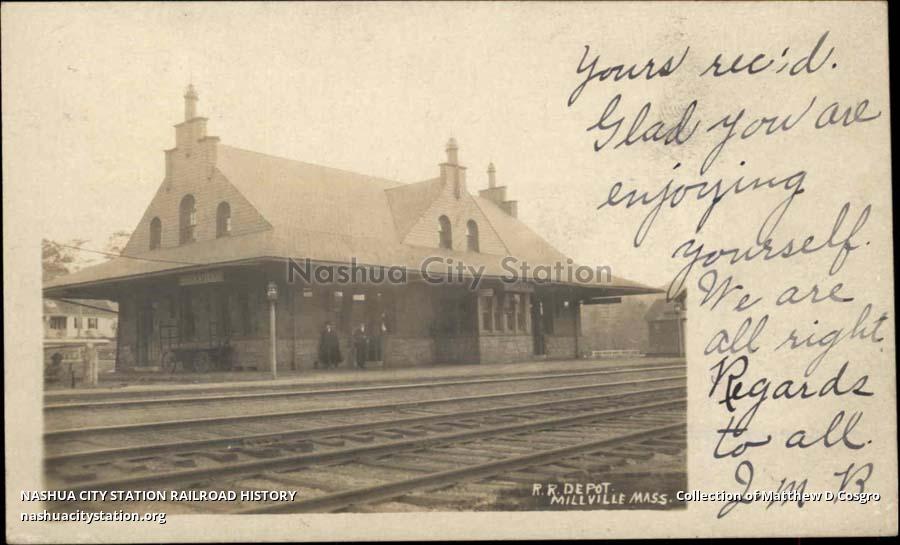 Yours rec'd.
Glad you are
enjoying
yourself.
We are
all right
Regards
to all.
J. M. R
Nashua City Station
R.R. DEPOT.
MILLVILLE MASS.
NASHUA CITY STATION RAILROAD HISTORY
nashuacitystation.org
Collection of Matthew D Cosgro